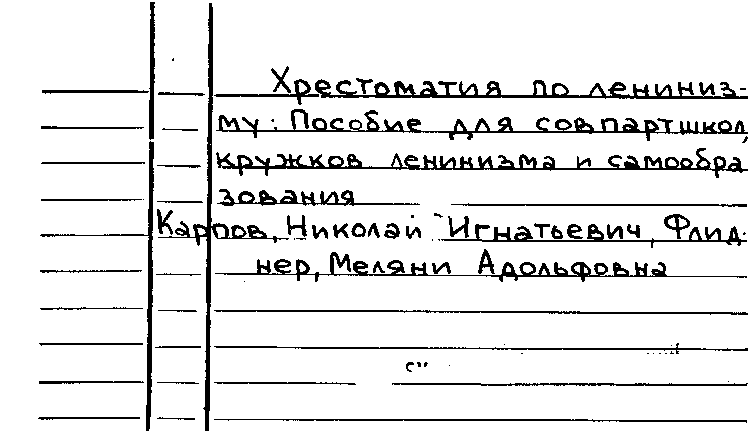 Хрестоматия по лениниз-
му: Пособие для совпартшкол,
кружков ленинизма и самообра
зования
Карпов, Николай Игнатьевич, Флид-
нер, Меляни Адольфовна